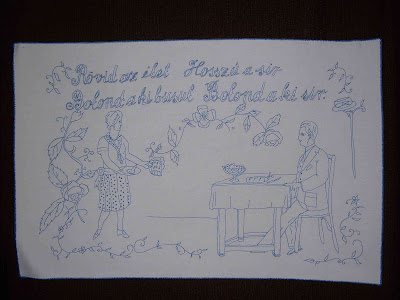 Rövid az élet Hosszú a sír
Bolond aki búsul Bolond a ki sír.